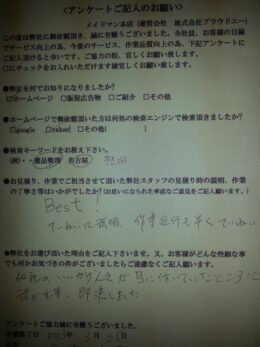 <アンケートご記入のお願い>
メイドマン本店(運営会社 株式会社プラウドエー)
この度は弊社に御依頼頂き、誠に有難うございました。全社員、お客様の目線
でサービス向上の為、今後のサービス、作業品質向上の為、下記アンケートに
ご記入頂けると幸いです。ご協力、宜しくお願い致します。
□にチェックをお入れいただけます様宜しくお願い致します。
●弊社を何でお知りになりましたか?
☑ホームページ □販促広告物 □ご紹介 □その他
●ホームページで御依頼頂いた方は何処の検索エンジンで検索頂きましたか?
□google ☑yahoo! □その他( )
●検索キーワードをお教え下さい。
(例)・遺品整理 名古屋
●お見積り、作業でご担当させて頂いた弊社スタッフの見積り時の説明、作業
の丁寧さ等はいかがでしたか?(お思いになられた事直なご意見をご記入願います。)
Best!
ていねいに説明、作業進行も早くていねい
●弊社をお選び頂いた理由をご記入下さいませ。又、お客様がどんな些細な事
でも何かお気づきの件がございましたらご遠慮なくご記入願います。
即決しました
アンケートご協力誠に有難うございました。
作業終了日 2013年 3月